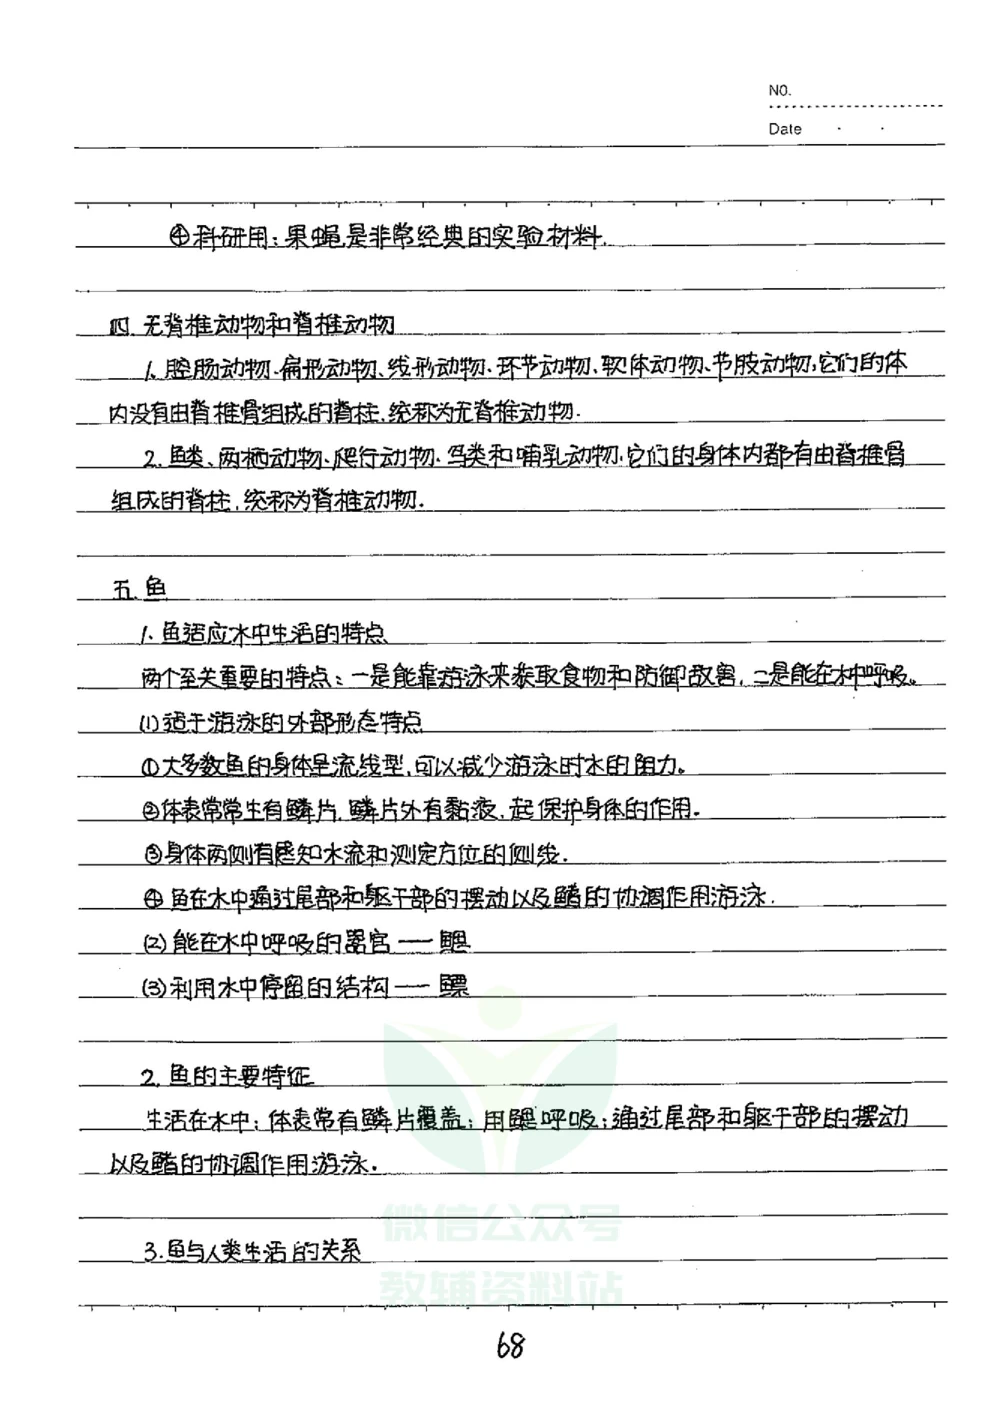 NO.
Date
④科研用:果蝇是非常经典的实验材料.
四.无脊椎动物和脊椎动物
1.腔肠动物、扁形动物、线形动物、环节动物、软体动物、节肢动物,它们的体
内没有由脊椎骨组成的脊柱,统称为无脊椎动物.
2.鱼类、两栖动物、爬行动物、鸟类和哺乳动物,它们的身体内都有由脊椎骨
组成的脊柱,统称为脊椎动物.
五.鱼
1.鱼适应水中生活的特点
两个至关重要的特点:一是能靠游泳来获取食物和防御敌害,二是能在水中呼吸。
(1)适于游泳的外部形态特点
①大多数鱼的身体呈流线型,可以减少游泳时水的阻力。
②体表常常生有鳞片,鳞片外有黏液,起保护身体的作用.
③身体两侧有感知水流和测定方位的侧线.
④鱼在水中通过尾部和躯干部的摆动以及鳍的协调作用游泳.
(2)能在水中呼吸的器官——鳃
(3)利用水中停留的结构——鳔
2.鱼的主要特征
生活在水中;体表常有鳞片覆盖;用鳃呼吸;通过尾部和躯干部的摆动
以及鳍的协调作用游泳.
微信公众号
3.鱼与人类生活的关系
教辅资料站
68